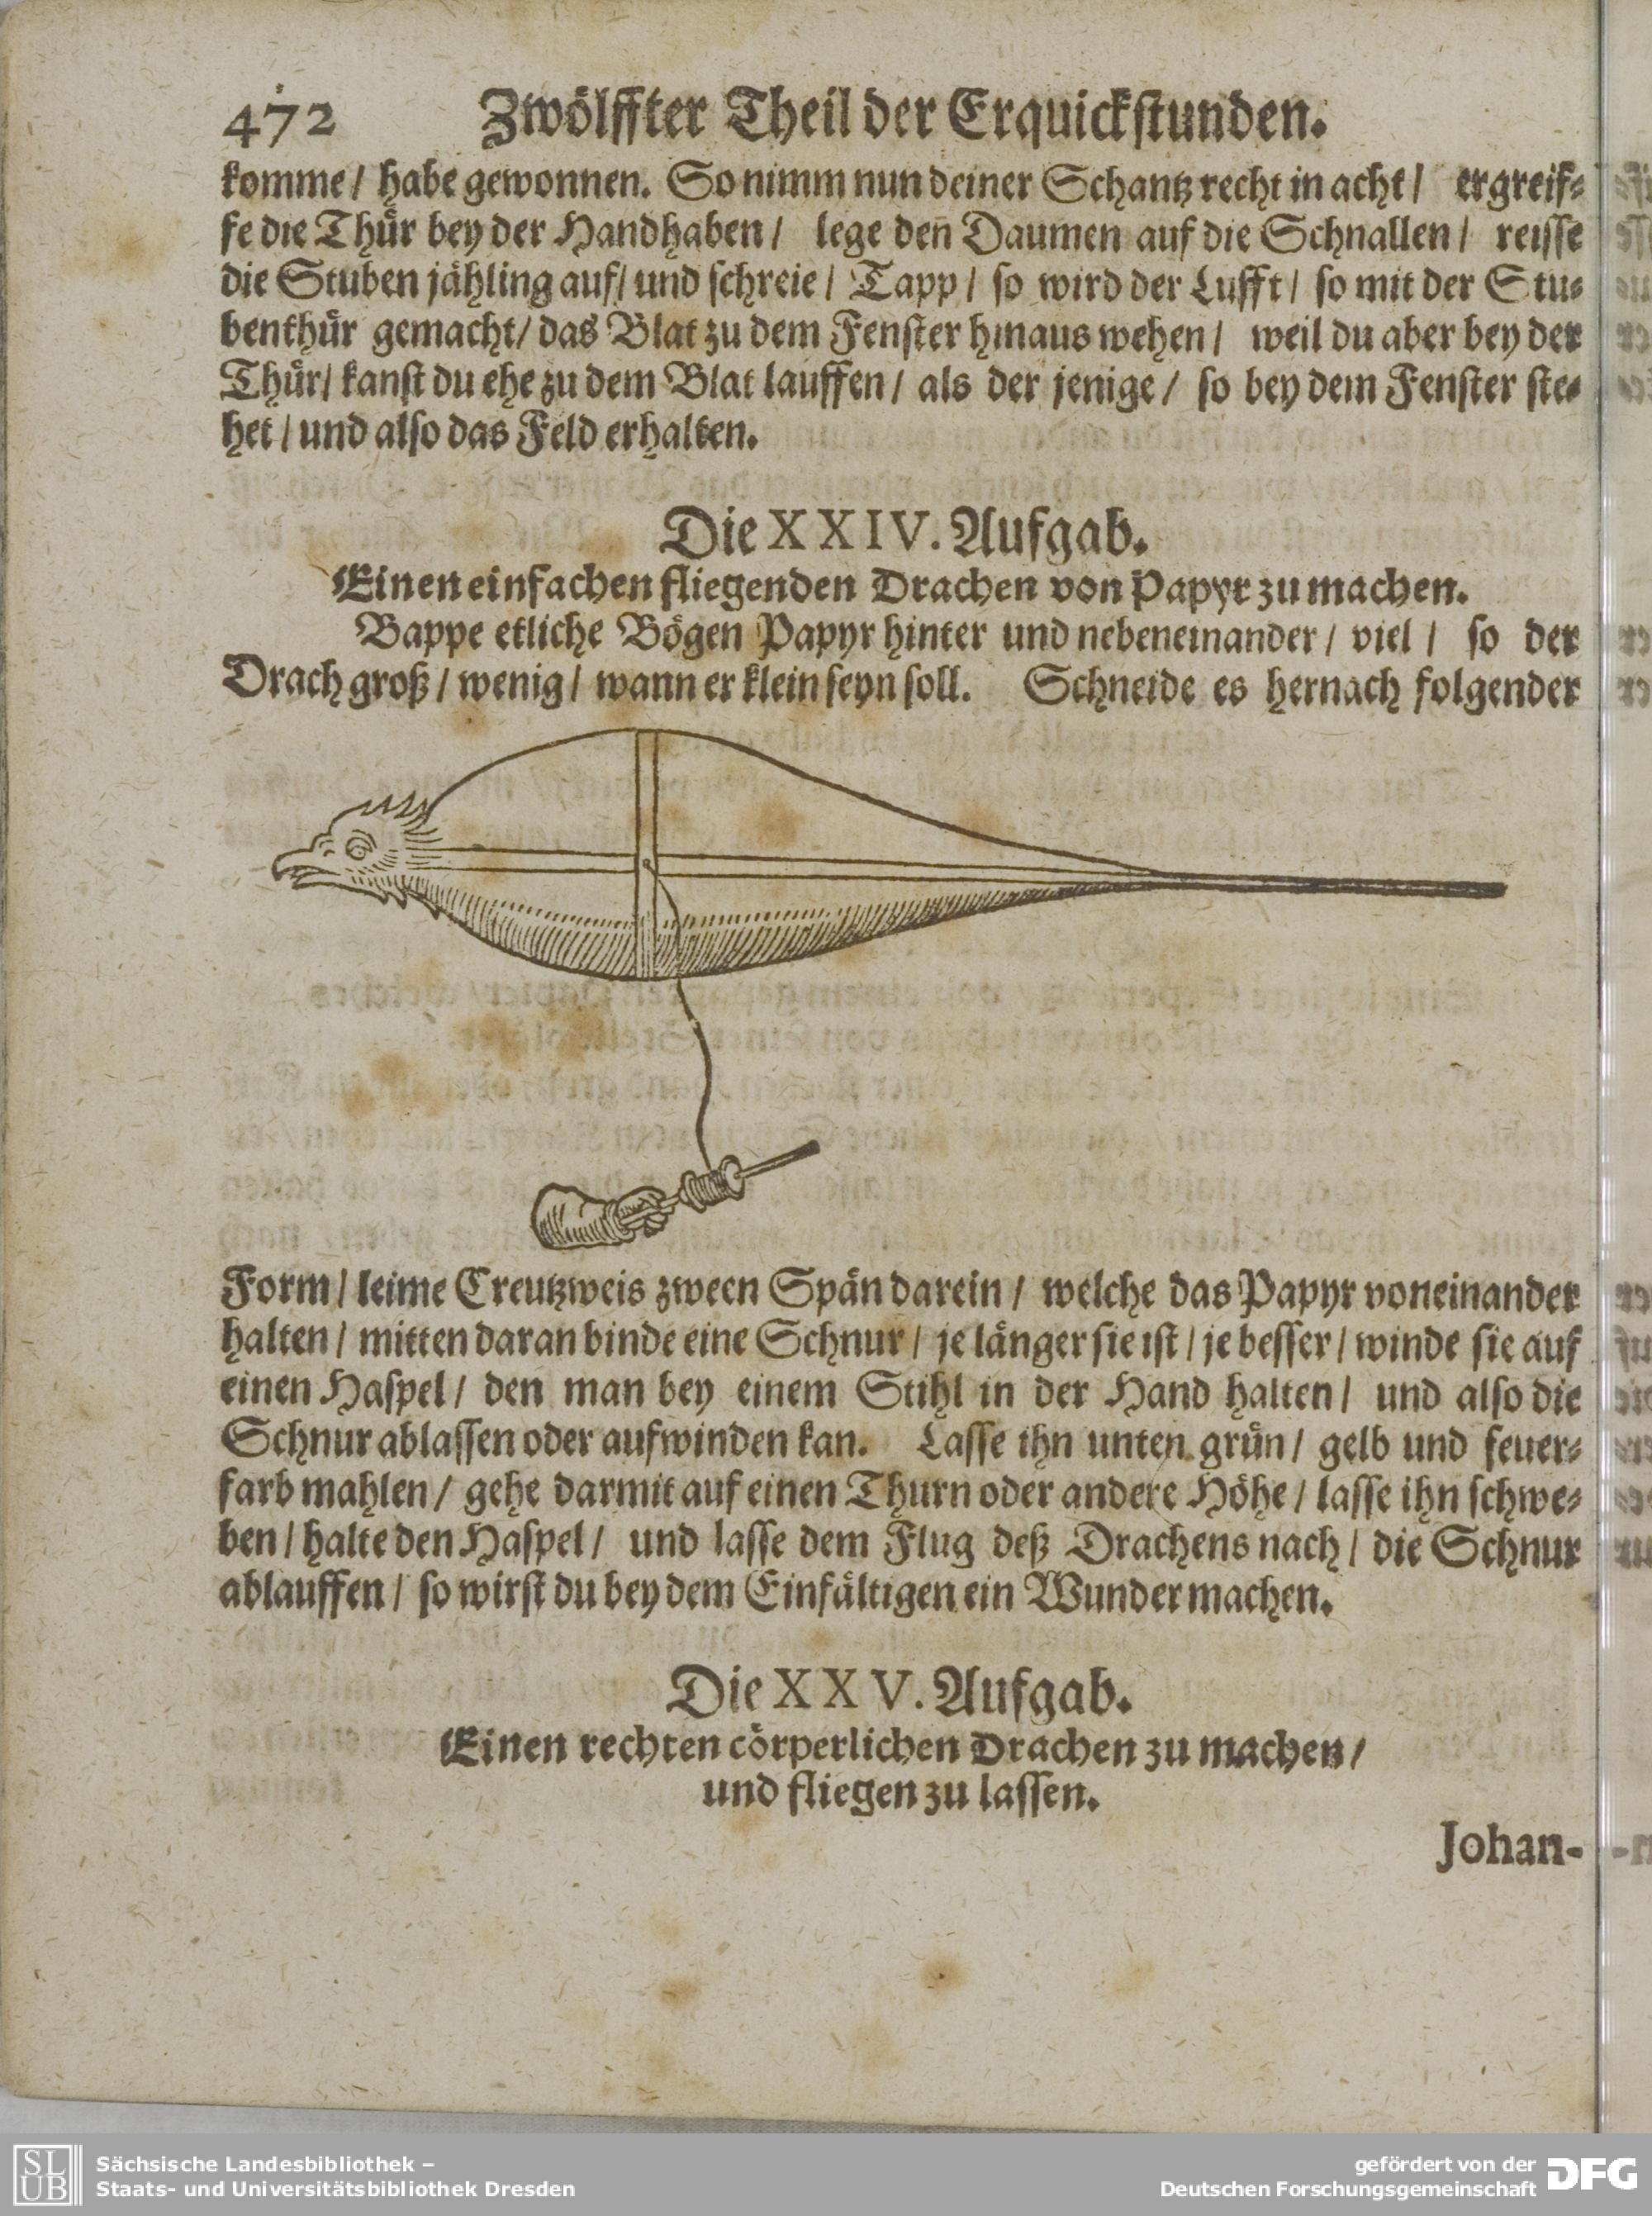 472 Zwölffter Theil der Erquickstunden.
komme / habe gewonnen. So nimm nun deiner Schantz recht in acht / ergreif-
fe die Thür bey der Handhaben / lege den Daumen auf die Schnallen / reisse
die Stuben jähling auf / und schreie / Tapp / so wird der Lufft / so mit der Stu-
benthür gemacht / das Blat zu dem Fenster hinaus wehen / weil du aber bey der
Thür / kanst du ehe zu dem Blat lauffen / als der jenige / so bey dem Fenster ste-
het / und also das Feld erhalten.
Die XXIV. Aufgab.
Einen einfachen fliegenden Drachen von Papyr zu machen.
Bappe etliche Bögen Papyr hinter und nebeneinander / viel / so der
Drach groß / wenig / wann er klein seyn soll. Schneide es hernach folgender
Form / leime Creutzweis zween Spän darein / welche das Papyr voneinander
halten / mitten daran binde eine Schnur / je länger sie ist / je besser / winde sie auf
einen Haspel / den man bey einem Stihl in der Hand halten / und also die
Schnur ablassen oder aufwinden kan. Lasse ihn unten grün / gelb und feuer-
farb mahlen / gehe darmit auf einen Thurn oder andere Höhe / lasse ihn schwe-
ben / halte den Haspel / und lasse dem Flug deß Drachens nach / die Schnur
ablauffen / so wirst du bey dem Einfältigen ein Wunder machen.
Die XXV. Aufgab.
Einen rechten cörperlichen Drachen zu machen /
und fliegen zu lassen.
Johan-
SLUB
Sächsische Landesbibliothek –
Staats- und Universitätsbibliothek Dresden
gefördert von der
Deutschen Forschungsgemeinschaft
DFG